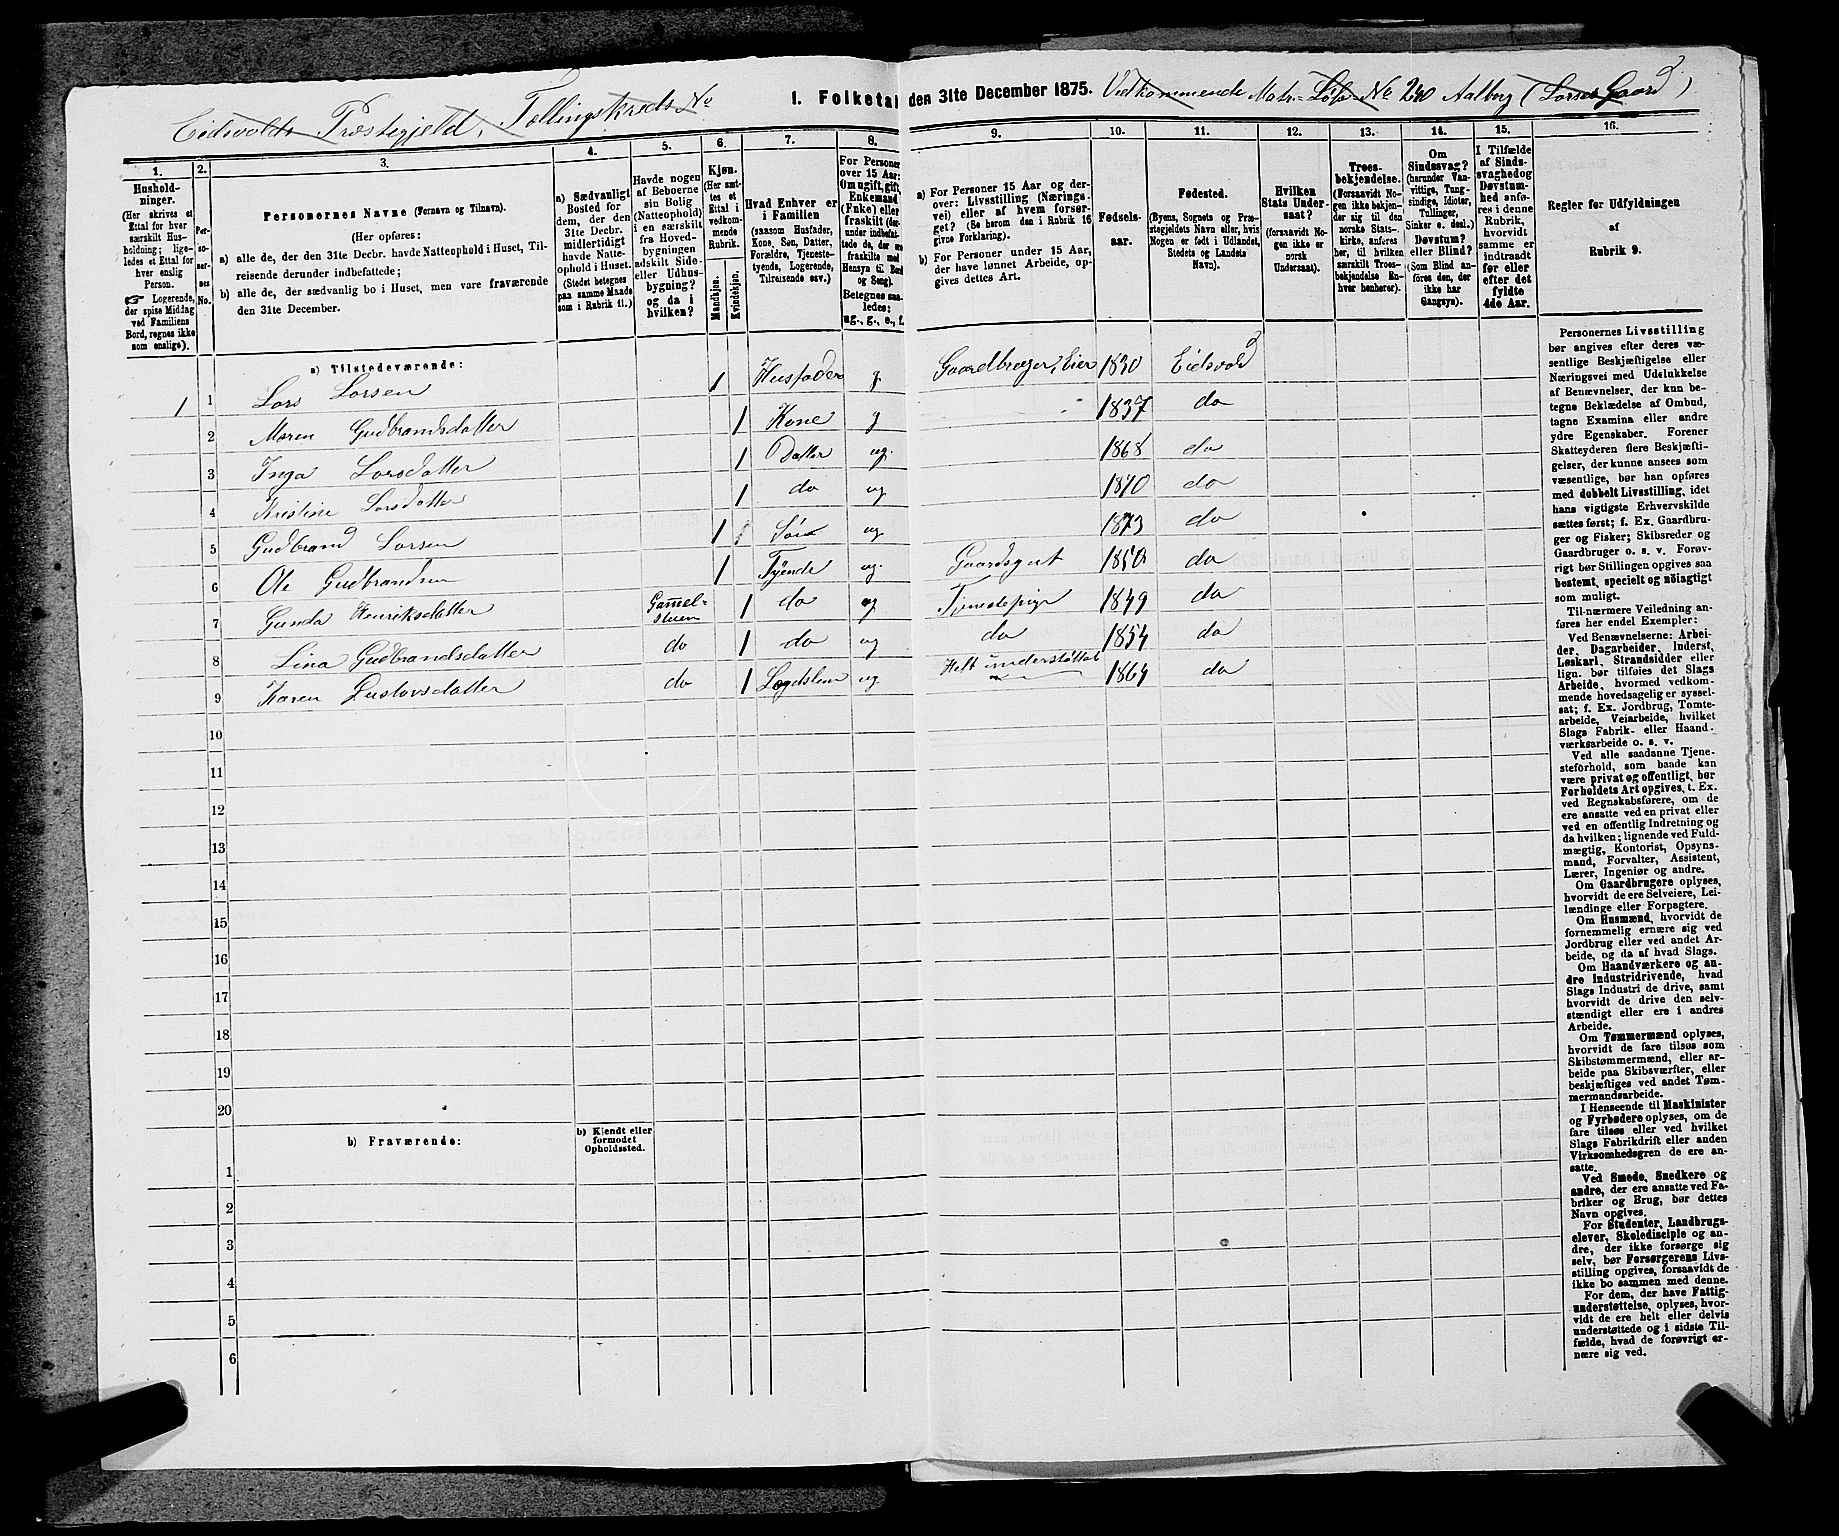 Eidsvolds Præstegjeld, Tællingskreds No
I. Folketal den 31te December 1875. Vedkommende Matr. Løb No 240 Aalborg (Lorsen Gaard)
1.
Hushold-
ninger.
(Her skrives et
Ettal for hver
særskilt Hus-
holdning; lige-
ledes et Ettal for
hver enslig
Person.
☞ Logerende,
der spise Middag
ved Familiens
Bord, regnes ikke
som enslige).
2.
Per-
so-
ner-
nes
No.
3.
Personernes Navne (Fornavn og Tilnavn).
(Her opføres:
a) alle de, der den 31te Decbr. havde Natteophold i Huset, Til-
reisende derunder indbefattede;
b) alle de, der sædvanlig bo i Huset, men vare fraværende
den 31te December.
4.
a) Sædvanligt
Bosted for
dem, der den
31te Decbr.
midlertidigt
havde Natte-
ophold i Huset.
(Stedet betegnes
paa samme Maade
som i Rubrik 11.)
5.
Havde nogen
af Beboerne
sin Bolig
(Natteophold)
i en særskilt
fra Hoved-
bygningen
adskilt Side-
eller Udhus-
bygning?
og da i
hvilken?
6.
Kjøn.
(Her sæt-
tes et
Ettal i
vedkom-
mende
Rubrik.
Mandkjøn.
Kvindekjøn.
7.
Hvad Enhver er
i Familien
(saasom Husfader,
Kone, Søn, Datter,
Forældre, Tjeneste-
tyende, Logerende,
Tilreisende osv.)
8.
For Personer
over 15 Aar:
Om ugift, gift,
Enkemand
(Enke) eller
fraskilt (der-
under indbefat-
tede de, der ere
fraskilte med
Hensyn til Bord
og Seng).
Betegnes saa-
ledes:
ug., g., e., f.
9.
a) For Personer 15 Aar og der-
over: Livsstilling (Nærings-
vei) eller af hvem forsør-
get? (Se herom den i Rubrik 16
givne Forklaring).
b) For Personer under 15 Aar,
der have lønnet Arbeide, op-
gives dettes Art.
10.
Fødsels-
aar.
11.
Fødested.
(Byens, Sognets og Præ-
stegjeldets Navn eller, hvis
Nogen er født i Udlandet,
Stedets og Landets
Navn).
12.
Hvilken
Stats Under-
saat?
(forsaavidt No-
gen ikke er
norsk
Undersaat).
13.
Troes-
bekjendelse.
(Forsaavidt No-
gen ikke bekjen-
der sig til den
norske Stats-
kirke, anføres
her, til hvilken
særskilt Troes-
bekjendelse En-
hver henhører).
14.
Om
Sindssvag?
(herunder Van-
vittige, Tung-
sindige, Idioter,
Tullinger,
Sinker o. desl.)
Døvstum?
eller Blind?
(Som Blind an-
føres den, der
ikke har
Gangsyn).
15.
I Tilfælde
af Sinds-
svaghed og
Døvstum-
hed anfø-
res i denne
Rubrik,
hvorvidt
samme er
indtraadt
før eller
efter det
fyldte
4de Aar.
16.
Regler for Udfyldningen
af
Rubrik 9.
a) Tilstedeværende:
1 1 Lars Larsen 1 Husfader g. Gaardbruger, Eier 1830 Eidsvold
2 Maren Gudbrandsdatter 1 Kone g 1837 do
3 Inga Larsdatter 1 Datter ug. 1868 do
4 Kristine Larsdatter 1 do ug 1870 do
5 Gudbrand Larsen 1 Søn ug 1873 do
6 Ole Gudbrandsen 1 Tyende ug. Gaardsgut 1850 do
7 Gunda Henriksdatter Gammel-
stuen 1 do ug Tjenestepige 1849 do
8 Lina Gudbrandsdatter do 1 do ug do 1854 do
9 Karen Gustavsdatter do 1 Lægdslem ug. Helt understøttet 1864 do
10
11
12
13
14
15
16
17
18
19
20
b) Fraværende:
b) Kjendt eller
formodet
Opholdssted.
1
2
3
4
5
6
Personernes Livsstilling
bør angives efter deres væ-
sentlige Beskjæftigelse eller
Næringsvei med Udelukkelse
af Benævnelser, der kun be-
tegne Beklædelse af Ombud,
tagne Examina eller andre
ydre Egenskaber. Forener
Skatteyderen flere Beskjæfti-
gelser, der kunne ansees som
væsentlige, bør han opføres
med dobbelt Livsstilling, idet
hans vigtigste Erhvervskilde
sættes først; f. Ex. Gaardbru-
ger og Fisker; Skibsreder og
Gaardbruger o. s. v. Forøv-
rigt bør Stillingen opgives saa
bestemt, specielt og nøiagtigt
som muligt.
Til nærmere Veiledning an-
føres her endel Exempler:
Ved Benævnelserne: Arbei-
der, Dagarbeider, Inderst,
Løskarl, Strandsidder eller
lign. bør tilføies det Slags
Arbeide, hvormed vedkom-
mende hovedsagelig er syssel-
sat; f. Ex. Jordbrug, Tomte-
arbeide, Veiarbeide, hvilket
Slags Fabrik- eller Haand-
værksarbeide o. s. v.
Ved alle saadanne Tjene-
steforhold, som baade kan
være privat og offentligt, bør
Forholdets Art opgives, t. Ex.
ved Regnskabsførere, om de
ere ansatte ved en privat eller
ved en offentlig Indretning og
da hvilken; lignende ved Fuld-
mægtig, Kontorist, Opsyns-
mand, Forvalter, Assistent,
Lærer, Ingeniør og andre.
Om Gaardbrugere oplyses,
hvorvidt de ere Selveiere, Lei-
lændinge eller Forpagtere.
Om Husmænd, hvorvidt de
fornemmelig ernære sig ved
Jordbrug eller ved andet Ar-
beide, og da af hvad Slags.
Om Haandværkere og an-
dre Industridrivende, hvad
Slags Industri de drive, samt
hvorvidt de drive den selv-
stændigt eller ere i andres
Arbeide.
Om Tømmermænd oplyses,
hvorvidt de fare tilsøs som
Skibstømmermænd, eller ar-
beide paa Skibsværfter, eller
beskjæftiges ved andet Tøm-
mermandsarbeide.
I Henseende til Maskinister
og Fyrbødere oplyses, om de
fare tilsøs eller ved hvilket
Slags Fabrikdrift eller anden
Virksomhedsgren de ere an-
satte.
Ved Smede, Snedkere og
andre, der ere ansatte ved Fa-
briker og Brug, bør dettes
Navn opgives.
For Studenter, Landbrugs-
elever, Skoledisciple og an-
dre, der ikke forsørge sig
selv, bør Forsørgerens Livs-
stilling opgives, forsaavidt de
ikke bo sammen med denne.
For dem, der have Fattig-
understøttelse, oplyses, hvor-
vidt de ere helt eller delvis
understøttede og i sidste Til-
fælde, hvad de forøvrigt er-
nære sig ved.